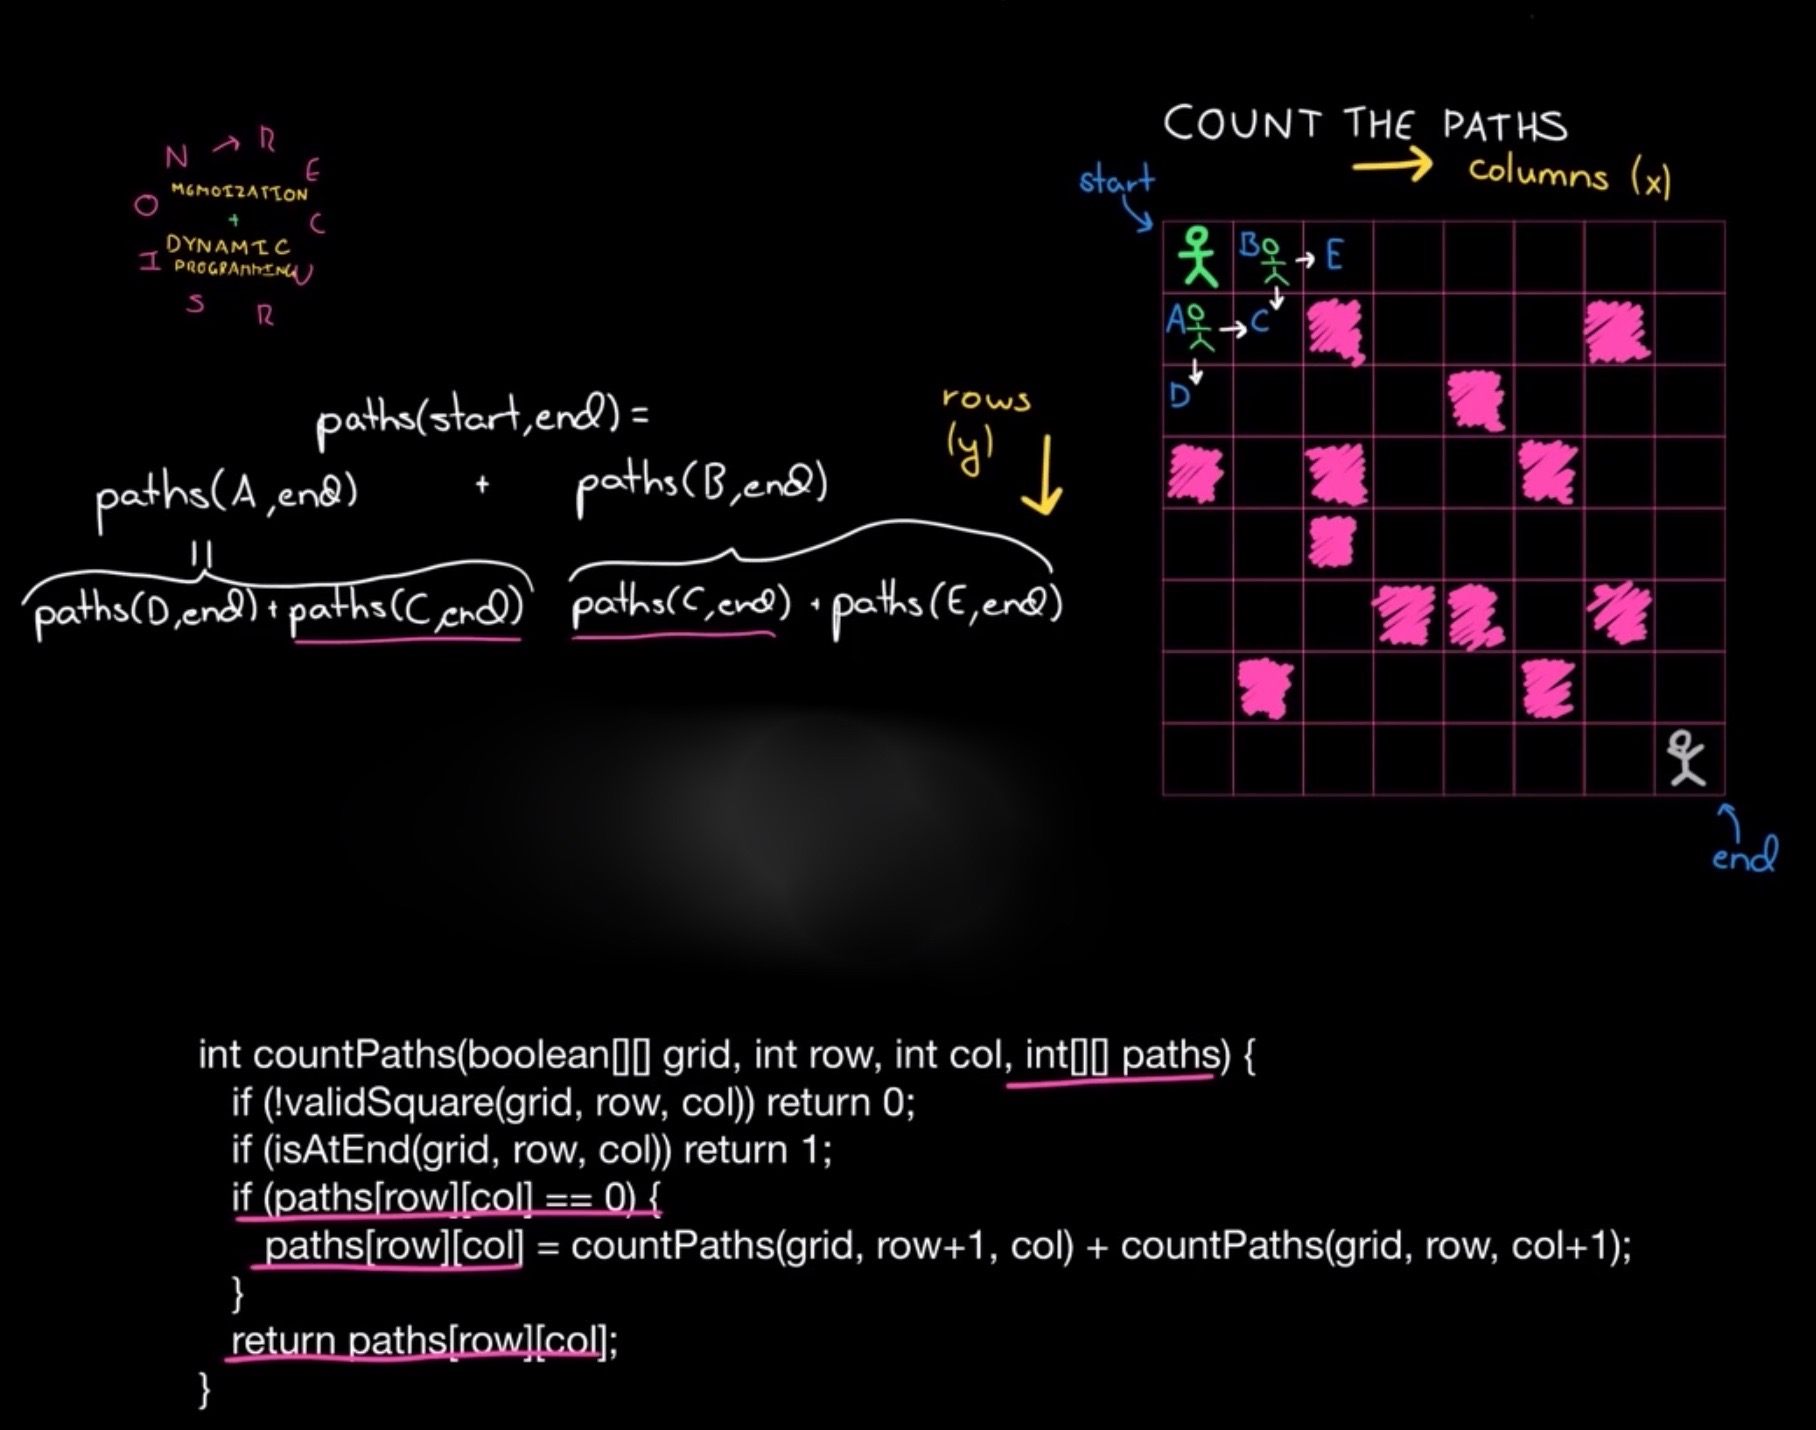 N → R E C U R S I O N
MEMOIZATION
+
DYNAMIC
PROGRAMMING
COUNT THE PATHS
→ columns (x)
start
B → E
A → C
D
rows
(y)
end
paths(start,end) =
paths(A,end) + paths(B,end)
||
paths(D,end) + paths(C,end) paths(C,end) + paths(E,end)
int countPaths(boolean[][] grid, int row, int col, int[][] paths) {
if (!validSquare(grid, row, col)) return 0;
if (isAtEnd(grid, row, col)) return 1;
if (paths[row][col] == 0) {
paths[row][col] = countPaths(grid, row+1, col) + countPaths(grid, row, col+1);
}
return paths[row][col];
}